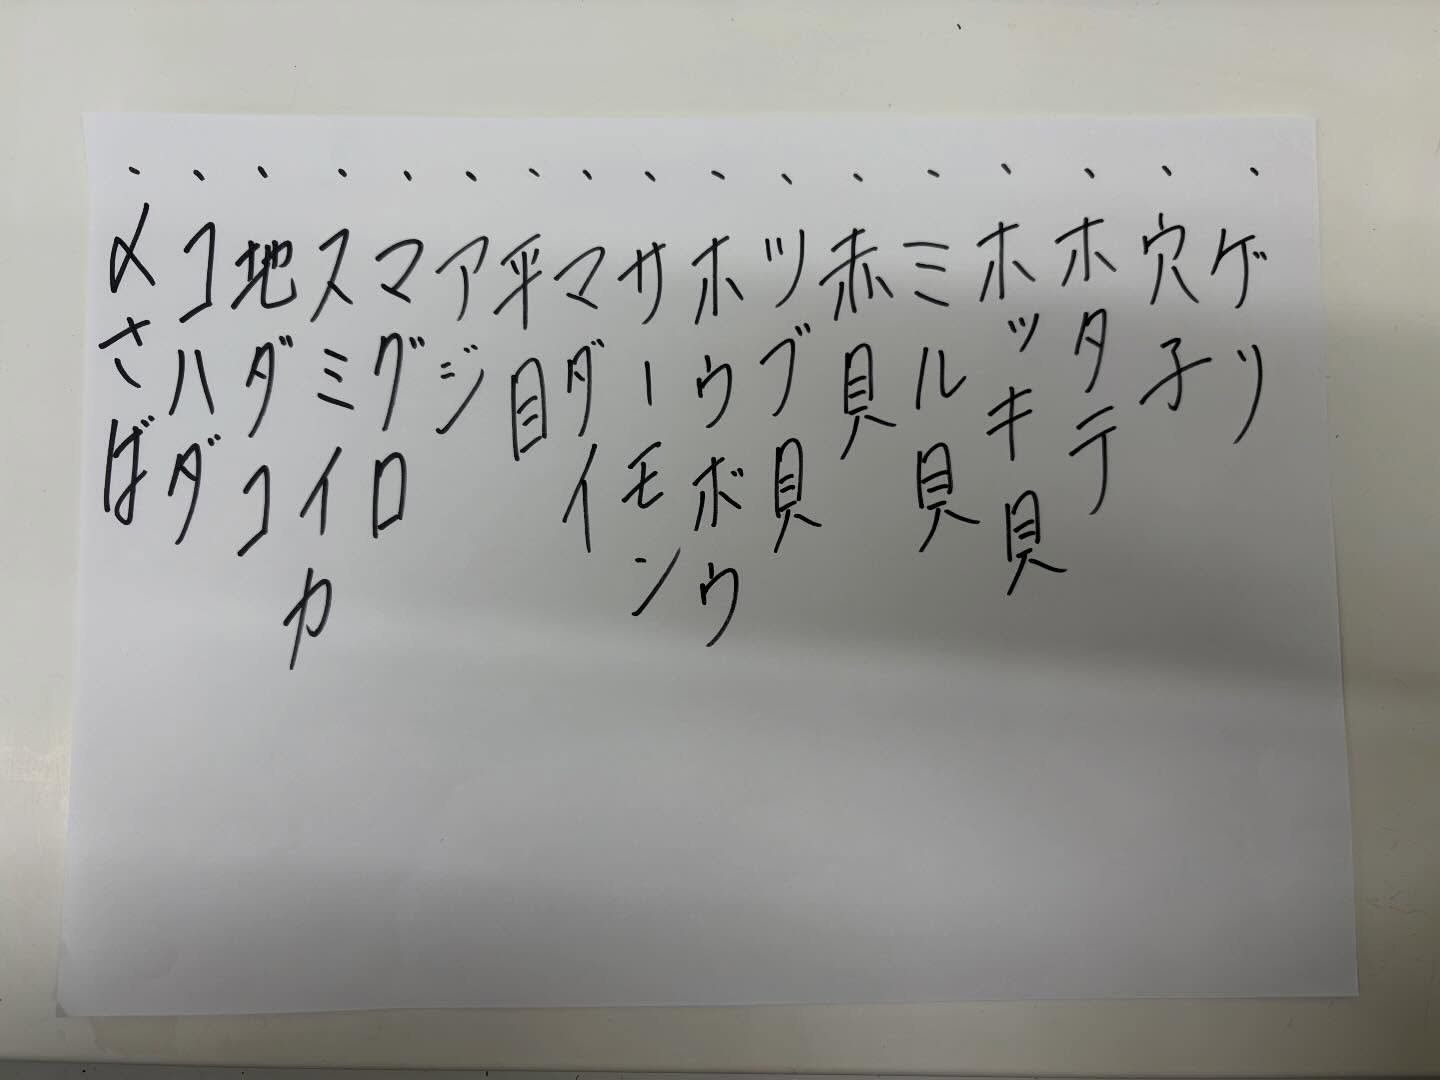 、ゲソ
、穴子
、ホタテ
、ホッキ貝
、ミル貝
、赤貝
、ツブ貝
、ホウボウ
、サーモン
、マダイ
、平目
、アジ
、マグロ
、スミイカ
、地ダコ
、コハダ
、〆さば